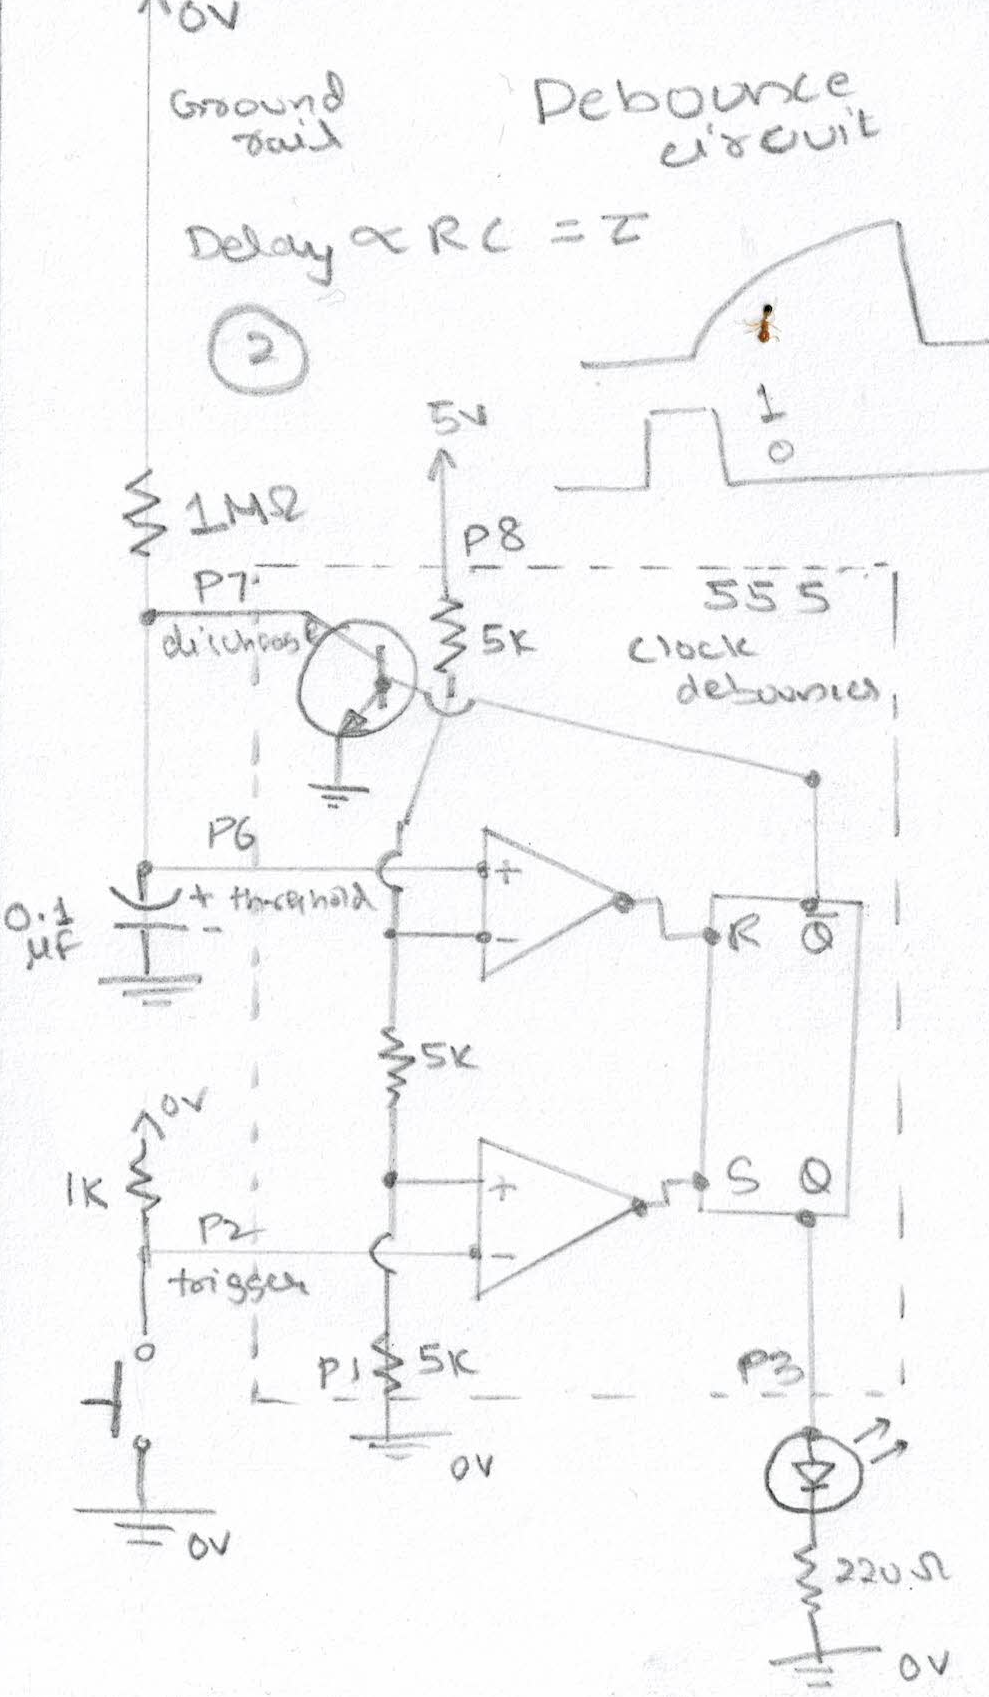 0V
Ground
rail
Debounce
circuit
Delay ∝ RC = τ
2
1
0
5V
1MΩ
P8
P7
555
discharge
5K
Clock
debouncer
P6
+ threshold
0.1
μF
-
+
-
R
Q̅
5K
0V
1K
+
S
Q
P2
-
trigger
P1
5K
P3
0V
0V
220Ω
0V